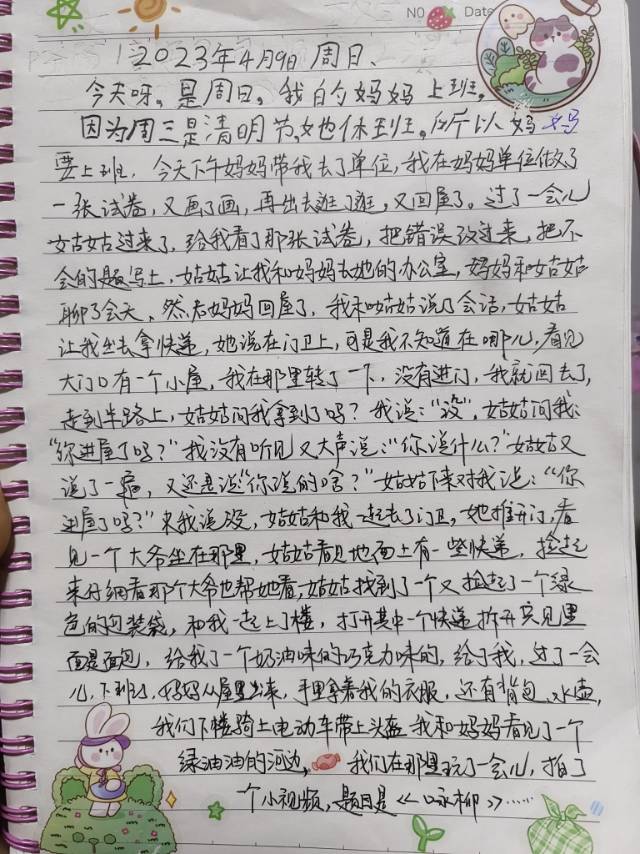 NO Date
2023年4月9日 周日、
今天呀。是周日。我的妈妈上班。
因为周三是清明节,她休班。所以妈妈
要上班．今天下午妈妈带我去了单位,我在妈妈单位做了
一张试卷,又画了画,再出去逛了逛,又回屋了。过了一会儿
姑姑过来了,给我看了那张试卷,把错误改过来,把不
会的题写上,姑姑让我和妈妈去她的办公室,妈妈和姑姑
聊了会天、然后妈妈回屋了,我和姑姑说了会话,姑姑
让我出去拿快递,她说在门卫上,可是我不知道在哪儿,看见
大门口有一个小屋,我在那里转了一下,没有进门,我就回去了,
走到半路上,姑姑问我拿到了吗？我说:“没”,姑姑问我:
“你进屋了吗?”我没有听见又大声说:“你说什么?”姑姑又
说了一遍,又还是说“你说的啥?”姑姑下来对我说:“你
进屋了吗?”我说没,姑姑和我一起去了门卫,她推开门,看
见一个大爷坐在那里,姑姑看见地面上有一些快递,捡起
来仔细看那个大爷也帮她看,姑姑找到了一个又捡起了一个绿
色的包装袋,和我一起上了楼,打开其中一个快递拆开只见里
面是面包,给我了一个奶油味的巧克力味的,给了我,过了一会
儿,下班了,妈妈从屋里出来,手里拿着我的衣服,还有背包、水壶,
我们下楼骑上电动车带上头盔我和妈妈看见了一个
绿油油的河边,我们在那里玩了一会儿,拍了
一个小视频,题目是《咏柳》……